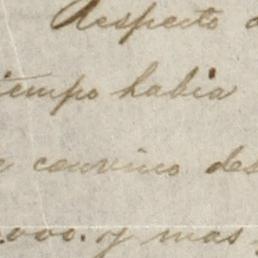 Respecto
tiempo habia
convino des
.000. y mas